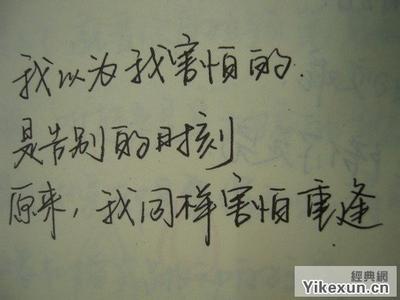 我以为我害怕的.
是告别的时刻
原来，我同样害怕重逢
經典網
Yikexun.cn